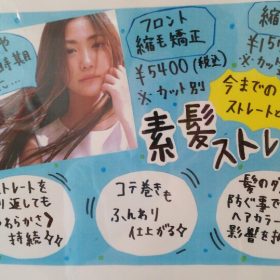 フロント
縮毛矯正
¥5400(税込)
※カット別
縮
¥150
※カット
今までの
ストレートと
素髪ストレ
トレートを
り返しても
わらかさ〉
持続☆☆
コテ巻きも
ふんわり
仕上がる☆
髪の
防ぐ事で
ヘアカラー
影響を